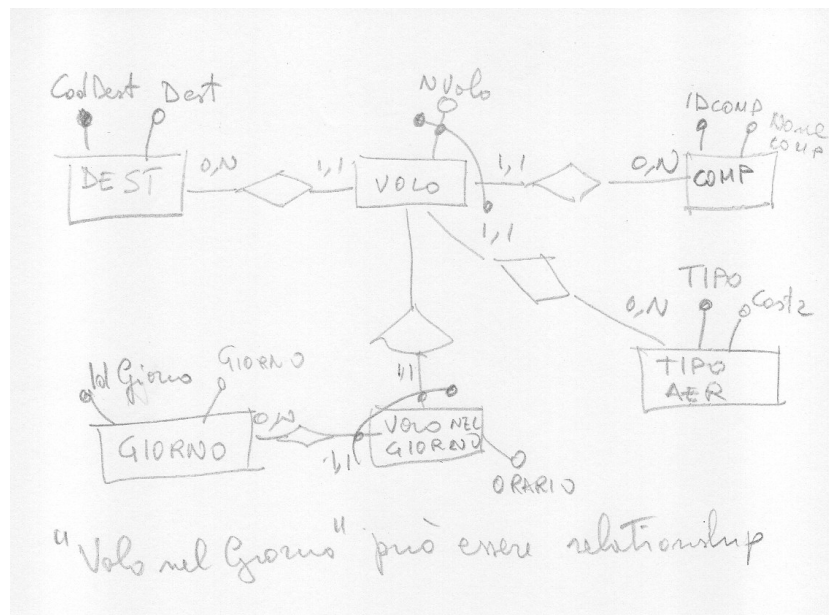 CodDest Dest NVolo IDCOMP Nome COMP
DEST 0,N 1,1 VOLO 1,1 0,N COMP
1,1
TIPO Costr
0,N
TIPO AER
Id Giorno GIORNO 1,1
GIORNO 0,N 1,1 VOLO NEL GIORNO
ORARIO
"Volo nel Giorno" può essere relationship